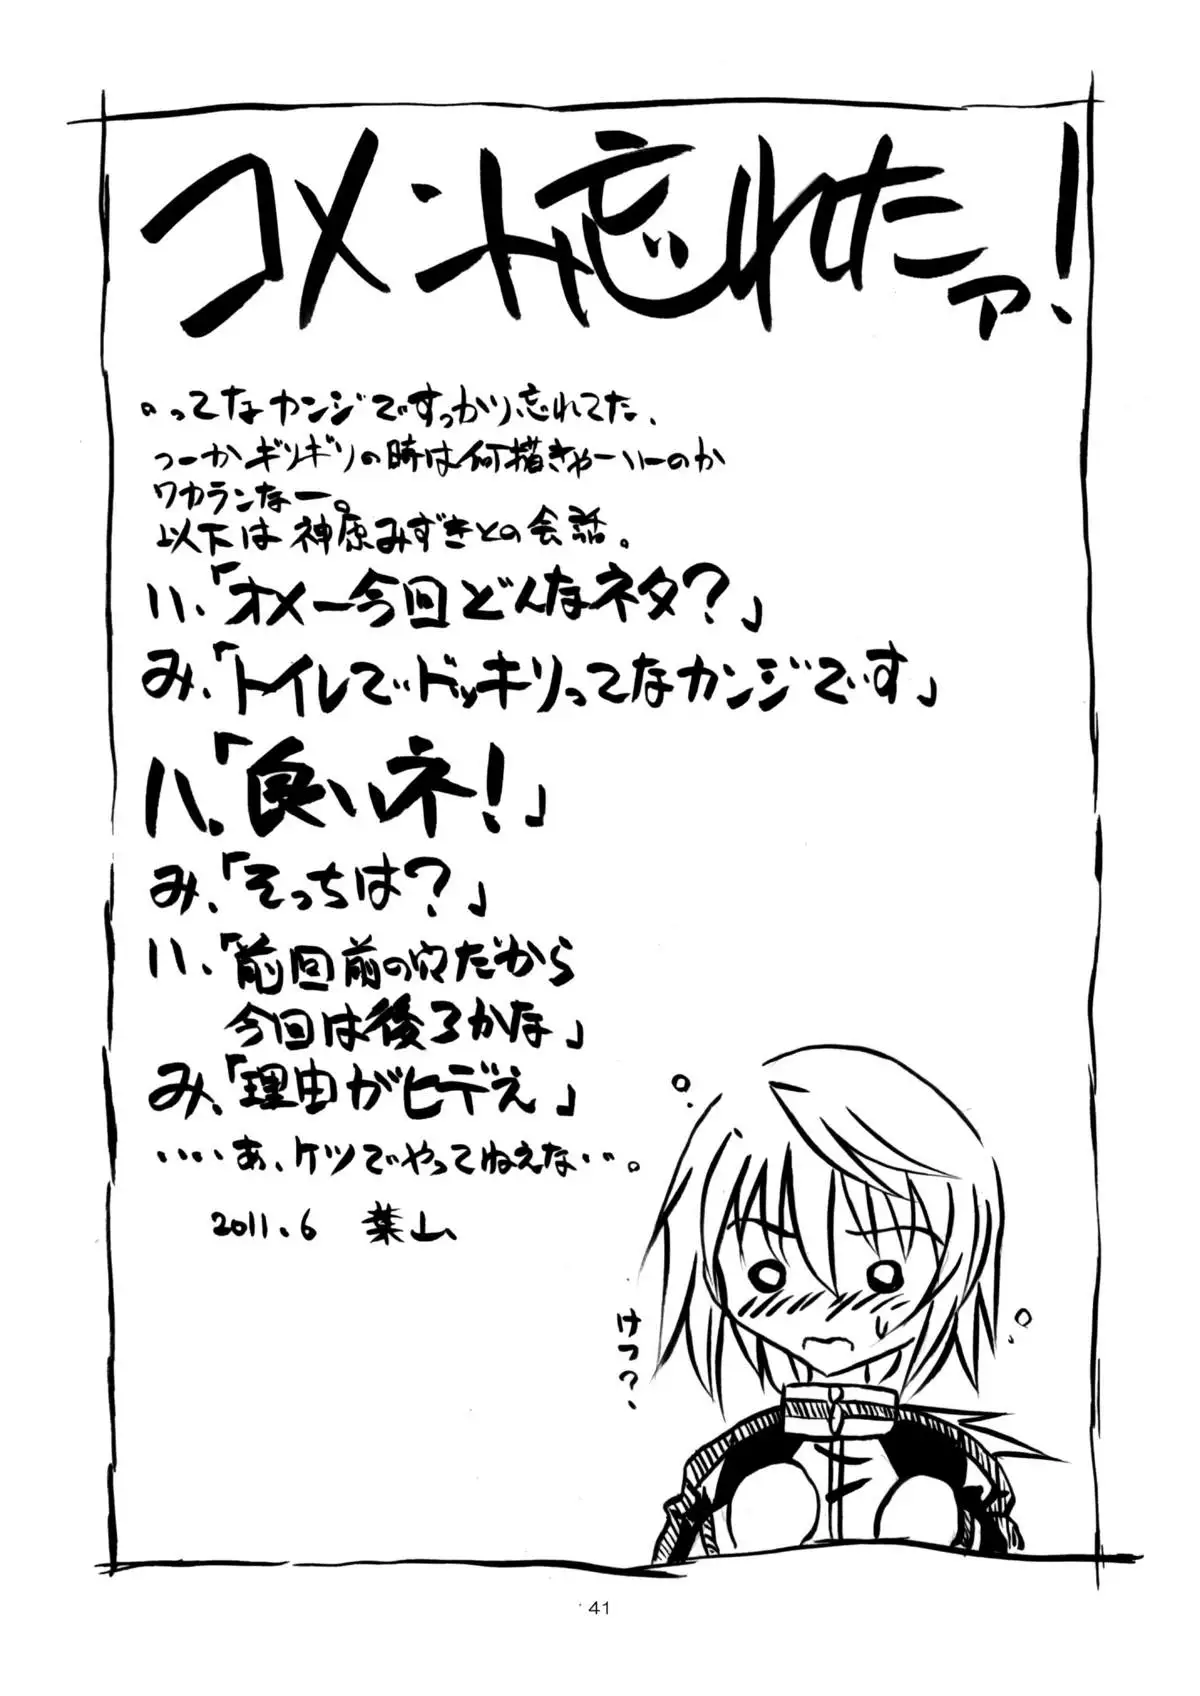 コメント忘れたァ!
・ってなカンジですっかり忘れてた、
つーかギリギリの時は何描きゃーいーのか
ワカランなー。
以下は神原みずきとの会話。
ハ、「オメー今回どんなネタ?」
み、「トイレでドッキリってなカンジです」
ハ。「良いネ!」
み、「そっちは?」
ハ、「前回前の穴だから
今回は後ろかな」
み、「理由がヒデえ」
・・・・あ、ケツでやってねえな・・。
2011.6 葉山
けつ?
41